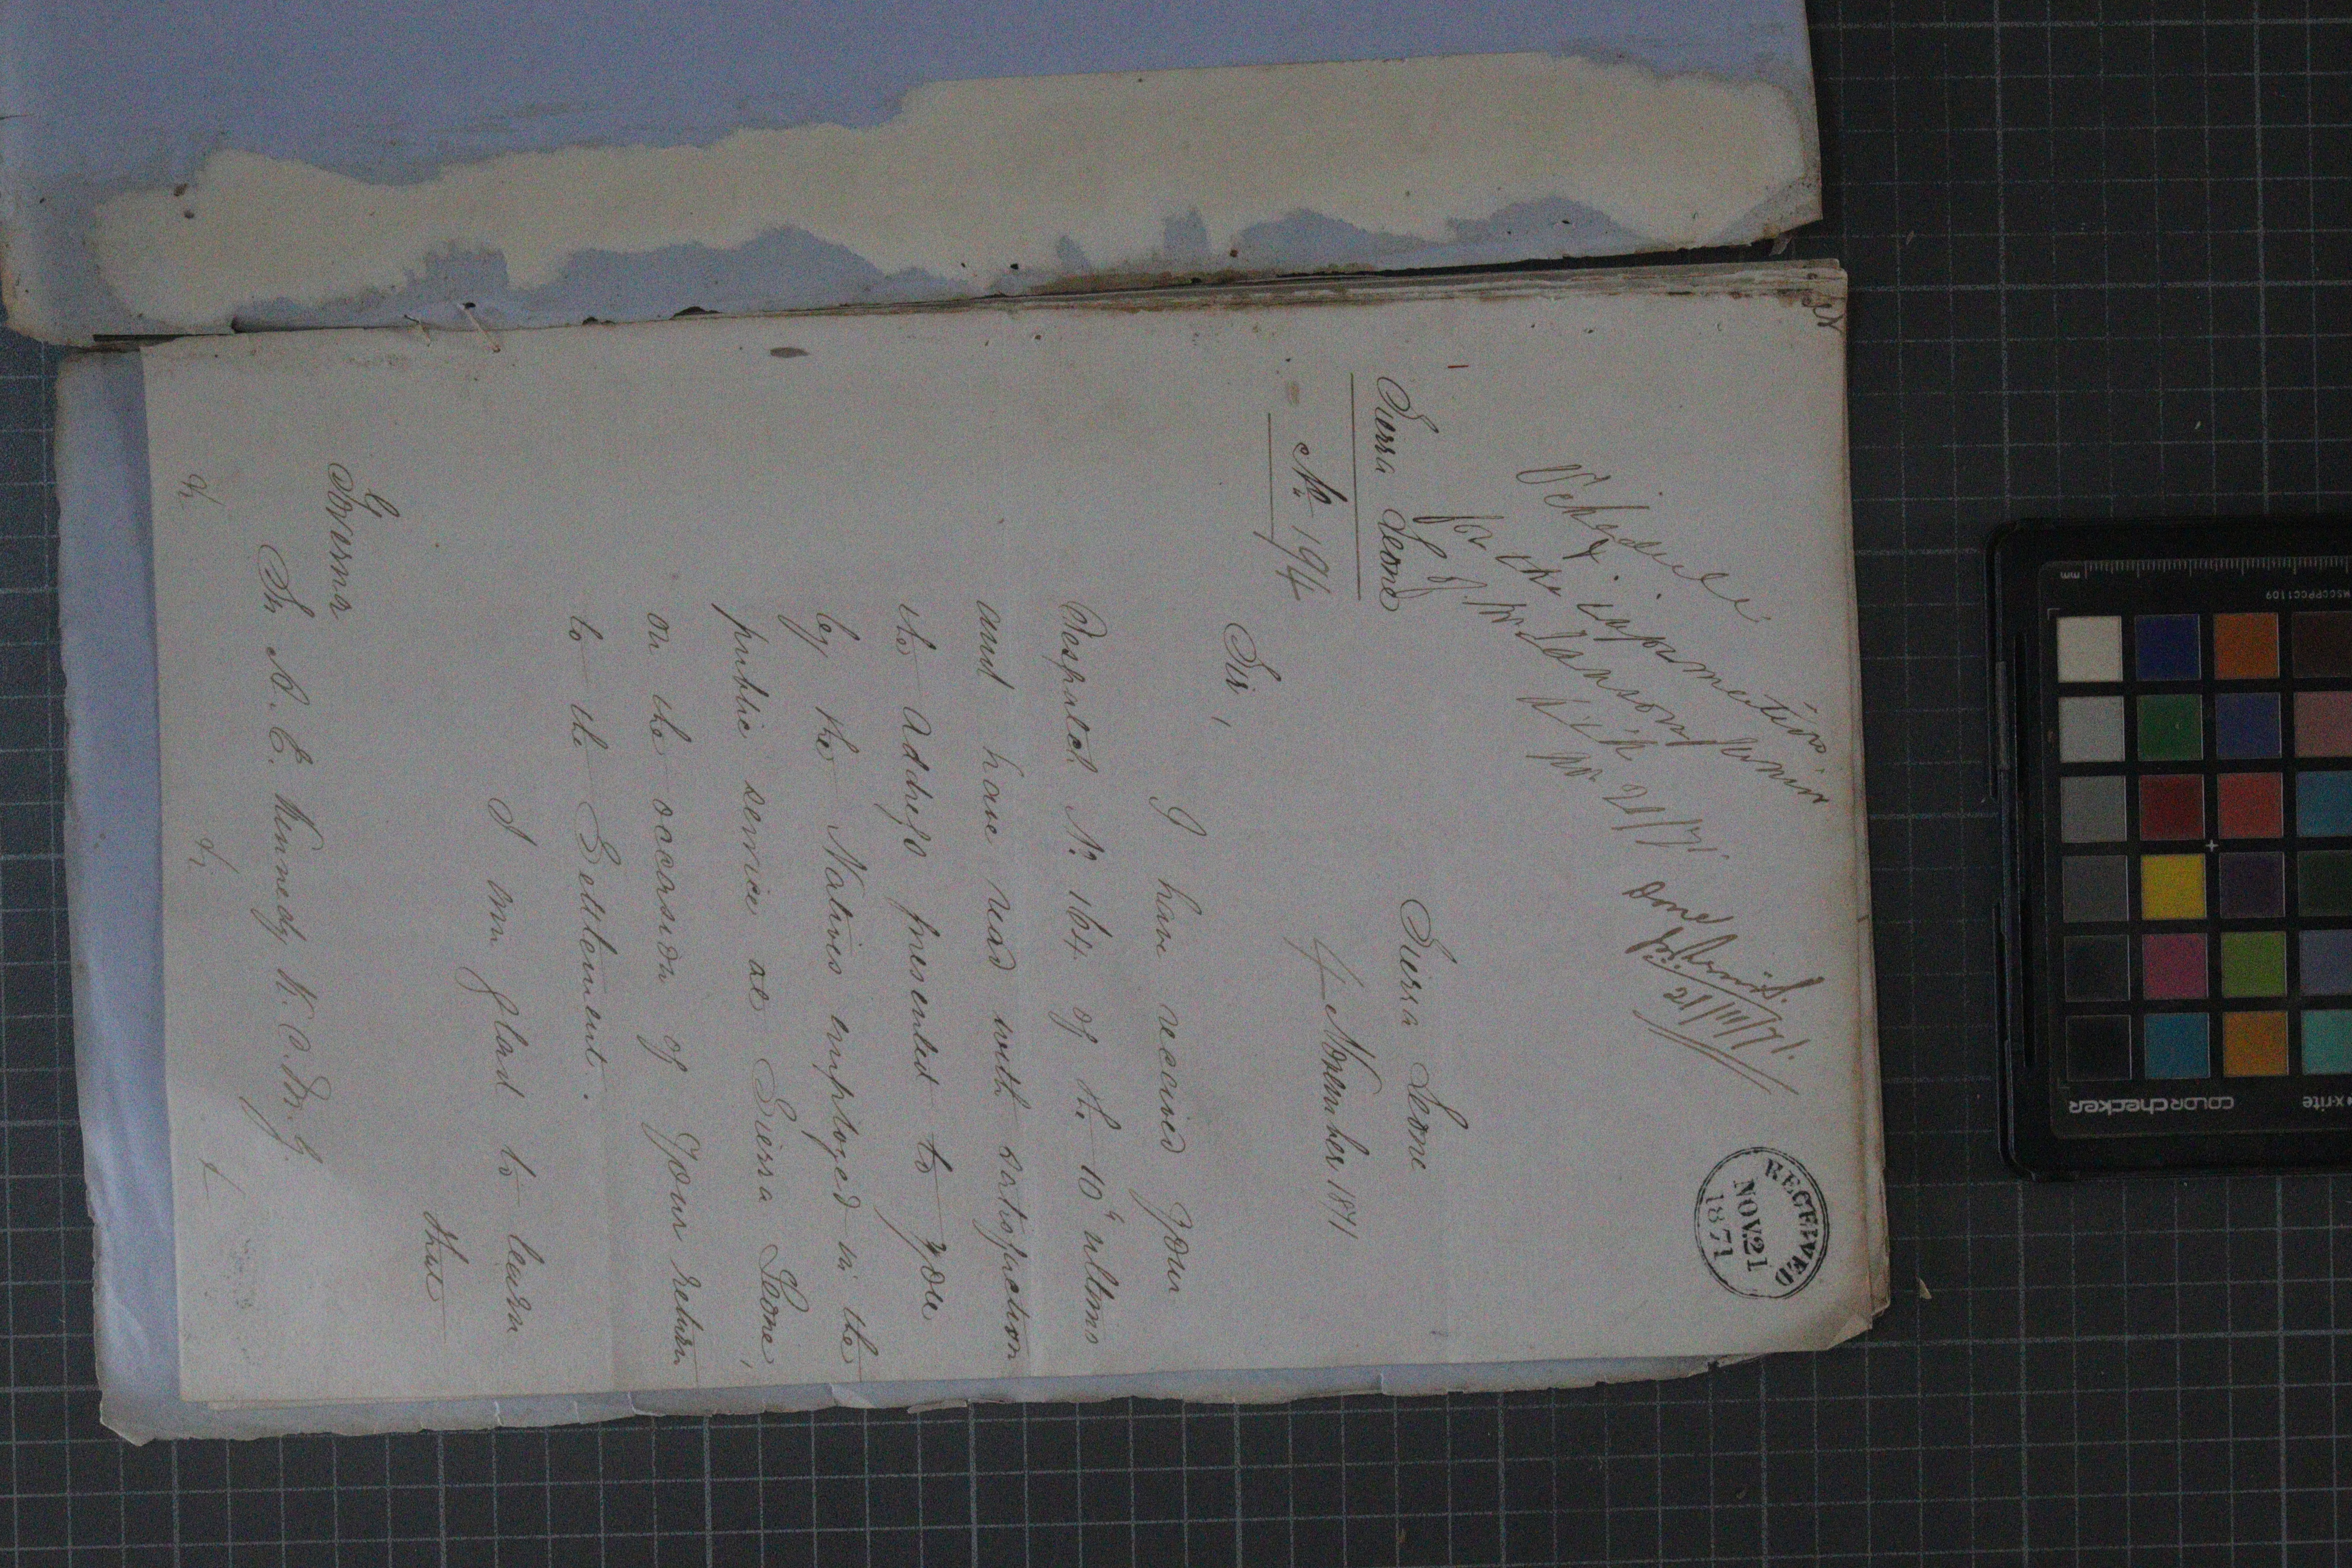 Schedule
& information
for the
Sierra Leone
Done
RECEIVED
NOV 21
1871
Sierra Leone
No. 194
Sierra Leone
4 November 1871
Sir,
I have received your
Despatch No. 164 of the 10th ultimo
and have read with satisfaction
the address presented to you
by the Natives employed in the
public service at Sierra Leone,
on the occasion of your return
to the Settlement.
I am glad to learn
that
Governor
Sir A. E. Kennedy K.C.M.G.
&c. &c. &c.
COLORchecker
x-rite
MSCCPPCC1109
mm